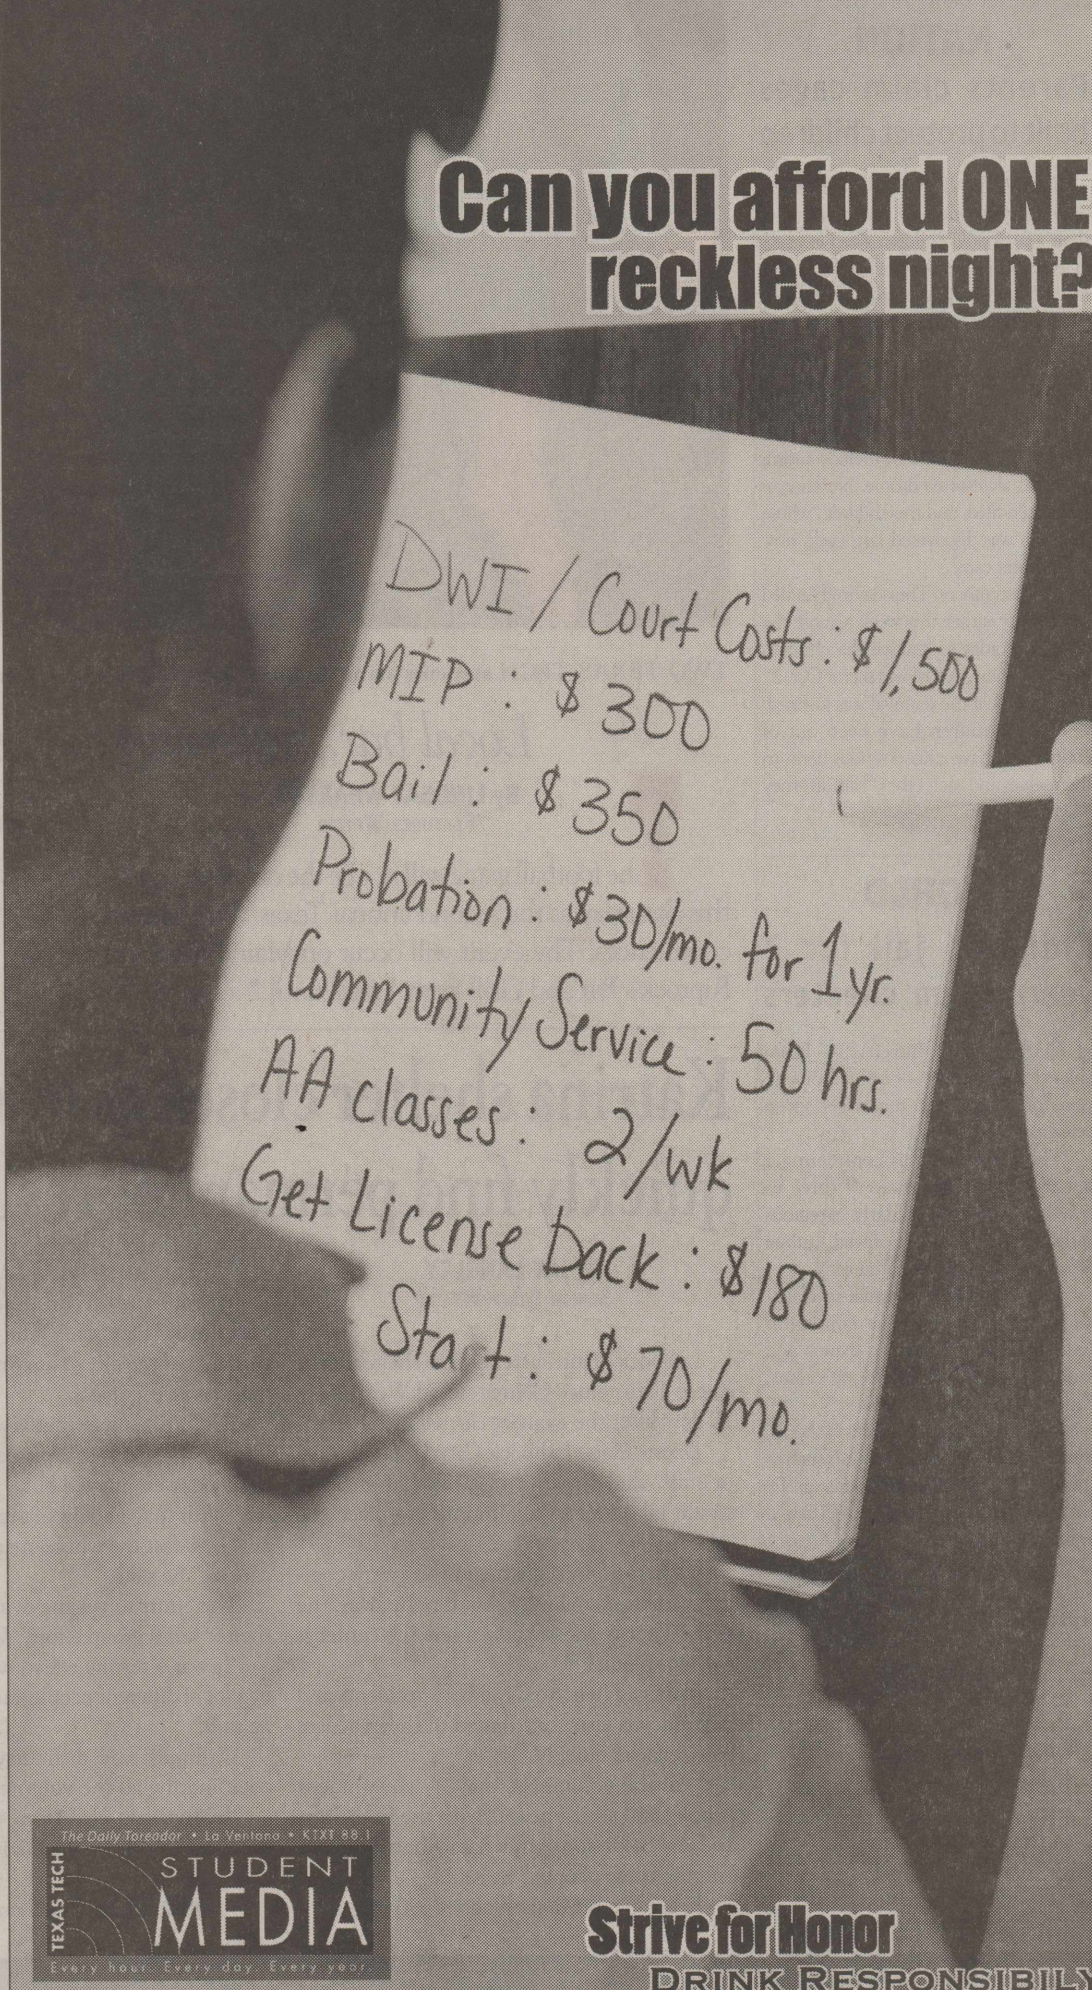 Can you afford ONE
reckless night?
DWI / Court Costs: $1,500
MIP: $300
Bail: $350
Probation: $30/mo. for 1yr.
Community Service: 50 hrs.
AA classes: 2/wk
Get License back: $180
Start: $70/mo.
The Daily Toreador • La Ventana • KTXT 88.1
TEXAS TECH
STUDENT
MEDIA
Every hour. Every day. Every year.
Strive for Honor
DRINK RESPONSIBILY